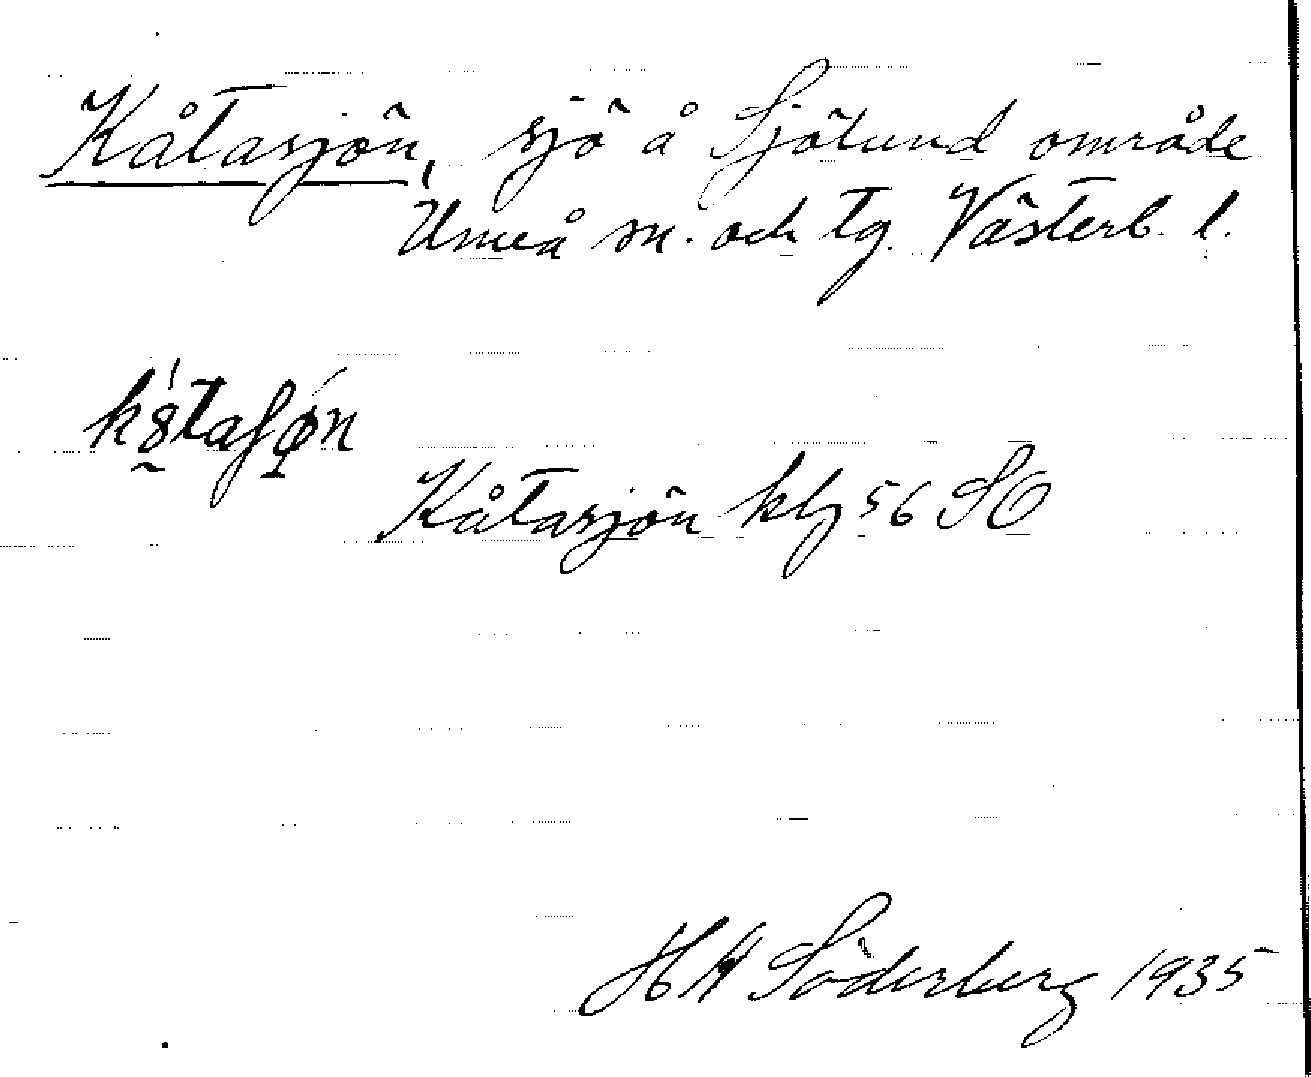 Kåtasjön, sjö å Sjölund område
Umeå sn. och tg. Västerb. l.
Kåtasjön kbg 56 SO
H H Söderberg 1935